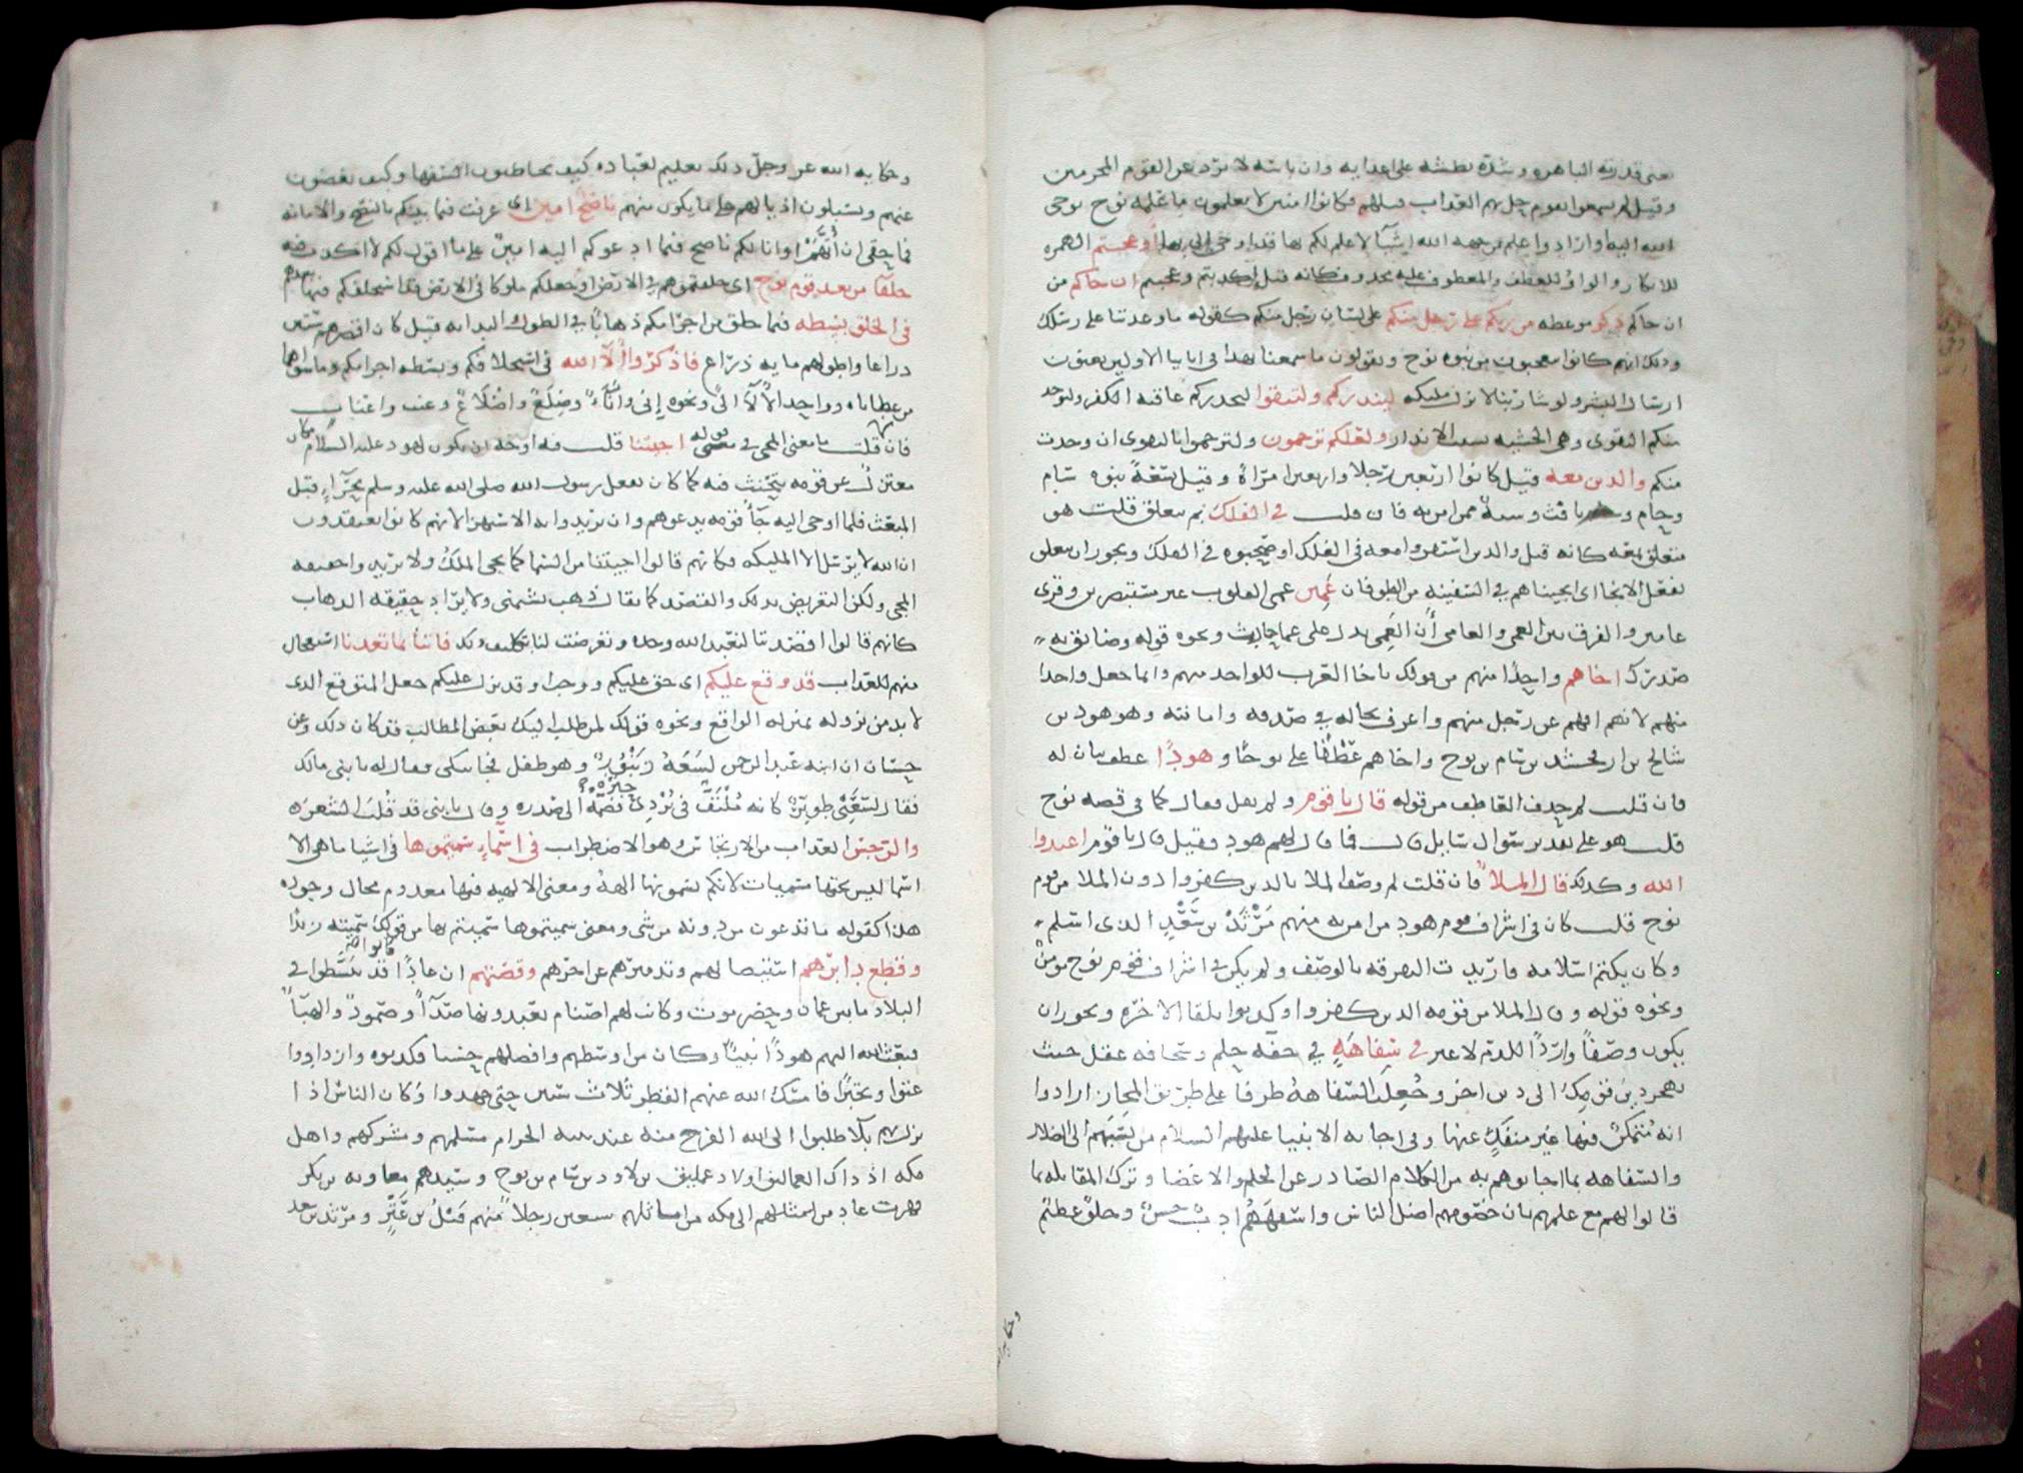 يعنى قدرته الباهرة وشدة بطشه على اعدايه وان باسه لا يرد عن القوم المجرمين
وقيل لم يسمعوا بقوم حل بهم العذاب قبلهم فكانوا امنين لا يعلمون ما علمه نوح بوحى
الله اليه او اراد واعلم من جهة الله اشيآ لا علم لكم بها قد اوحى الى بها أوعجبتم الهمزة
للانكار والواو للعطف والمعطوف عليه محذوف كانه قيل اكذبتم وعجبتم ان جاكم من
ان جاكم ذكر موعظة من ربكم على رجل منكم على لسان رجل منكم كقوله ما وعدتنا على رسلك
وذلك انهم كانوا يتعجبون من نبوة نوح ويقولون ما سمعنا بهذا فى ابايا الاولين يعنون
ارسال البشر ولو شا ربنا لانزل مليكه لينذركم ولتتقوا ليحذركم عاقبة الكفر وليوجد
منكم التقوى وهى الخشية بسبب الانذار ولعلكم ترحمون ولترحموا بالتقوى ان وجدت
منكم والدين معه قيل كانوا اربعين رجلا واربعين امراة وقيل تسعة بنوه سام
وحام ويافث وستة ممن امن به فان قلت فى الفلك بم يتعلق قلت هو
متعلق بمعه كانه قيل والدين استقروا معه فى الفلك او صحبوه فى الفلك ويجوز ان يتعلق
بفعل الانجا اى انجيناهم فى السفينة من الطوفان عمين عمى القلوب غير مستبصرين وقرى
عامين والفرق بين العمى والعامى أن العمى يدل على عما ثابت ونحوه قوله وضايق به
صدرك اخاهم واحدا منهم من قولك يا اخا العرب للواحد منهم وانما جعل واحدا
منهم لانهم افهم عن رجل منهم واعرف بحاله فى صدقه وامانته وهو هود بن
شالخ بن ارفخشد بن سام بن نوح واخاهم عطفا على نوحا وهودًا عطف بيان له
فان قلت لم حدف العاطف من قوله قال يا قوم ولم يقل فقال كما فى قصة نوح
قلت هو على تقدير سوال سايل قال فما قال لهم هود فقيل قال يا قوم اعبدوا
الله وكذلك قال الملأ فان قلت لم وصف الملا بالدين كفروا دون الملا من قوم
نوح قلت كان فى اشراف قوم هود من امن به منهم مرثد بن سعد الذى اسلم
وكان يكتم اسلامه فاريدت التفرقة بالوصف ولم يكن فى اشراف قوم نوح مومن
ونحوه قوله وقال الملا من قومه الدين كفروا وكدبوا بلقا الاخرة ويجوز ان
يكون وصفًا واردًا للدم لا غير فى سفاهة فى خفة حلم وسخافة عقل حيث
تهجر دين قومك الى دين اخر وجعلت السفاهة ظرفا على طريق المجاز ارادوا
انه متمكن فيها غير منفك عنها وفى اجابة الانبيا عليهم السلام من نسبهم الى الضلال
والسفاهة بما اجابوهم به من الكلام الصادر عن الحلم والاغضا وترك المقابلة بما
قالوا لهم مع علمهم بان خصومهم اضل الناس واسفههم ادب حسن وخلق عظيم
وحكاية الله عز وجل ذلك تعليم لعباده كيف يخاطبون السفها وكيف يغضون
عنهم ويسبلون اذيالهم على ما يكون منهم ناصح امين اى عرفت فيما بينكم بالنصح والامانة
فما حقى ان أتهم او انا لكم ناصح فيما ادعوكم اليه امين على ما اقول لكم لا اكذب فيه
خلفآ من بعد قوم نوح اى خلفتموهم فى الارض او جعلكم ملوكا فى الارض قد استخلفكم فيها بعدهم
فى الخلق بسطة فيما خلق من اجرامكم ذهابا فى الطول والبدانة قيل كان اقصرهم ستين
دراعا واطولهم ماية ذراع فاذكروا ألآ الله فى استخلافكم وبسطة اجرامكم وما سواهما
من عطاياه وواحد الألآ الى ونحوه إنى وانآء وضلع واضلاع وعنب واعناب
فان قلت ما معنى المجى فى قوله اجيتنا قلت فيه اوجه ان يكون لهود عليه السلام مكان
معتزل عن قومه يتحنث فيه كما كان يفعل رسول الله صلى الله عليه وسلم بحرآء قبل
المبعث فلما اوحى اليه جآ قومه يدعوهم وان يريدوا به الاستهزا لانهم كانوا يعتقدون
ان الله لا يرسل الا المليكة فكانهم قالوا اجيتنا من السما كما يجى الملك ولا يريد واحقيقة
المجى ولكن التعريض بذلك والقصد كما يقال ذهب يشتمنى ولا يراد حقيقة الدهاب
كانهم قالوا اقصدتنا لنعبد الله وحده وتعرضت لنا بتكليف ذلك فاتنا بما تعدنا استعجال
منهم للعذاب قد وقع عليكم اى حق عليكم ووجب او قد نزل عليكم جعل المتوقع الدى
لا بد من نزوله بمنزلة الواقع ونحوه قولك لمن طلب اليك بعض المطالب قد كان ذلك وعن
حسان ان ابنه عبد الرحمن لسعه زنبور وهو طفل فجا يبكى فقال له يا بنى مالك
فقال لسعنى طوير كانه ملتف فى بردى حبرة فضمه الى صدره وقال يا بنى قد قلت الشعر
والرجس العداب من الارتجاس وهو الاضطراب فى اسمآء سميتموها فى اشيا ما هى الا
اسما ليس تحتها مسميات لانكم تسمونها الهة ومعنى الالهية فيها معدوم محال وجوده
هذا كقوله ما تدعون من دونه من شى ومعنى سميتموها سميتم بها من قولك سميته زيدا
وقطع دابرهم استيصالهم وتدميرهم عن اخرهم وقصتهم ان عادًا قد تبسطوا فى
البلاد ما بين عمان وحضرموت وكانت لهم اصنام يعبدونها صدآ وصمود والهبآ
فبعث الله اليهم هودًا نبيا وكان من اوسطهم وافضلهم حسبا فكدبوه وازدادوا
عتوا وتجبرا فامسك الله عنهم القطر ثلاث سنين حتى جهدوا وكان الناس اذا
نزل بهم بلآ طلبوا الى الله الفرج منه عند بيته الحرام مسلمهم ومشركهم واهل
مكة اذ ذاك العماليق اولاد عمليق بن لاود بن سام بن نوح وسيدهم معاوية بن بكر
فجهزت عاد من اماثلهم الى مكة سبعين رجلا منهم قيل بن عنز ومرثد بن سعد